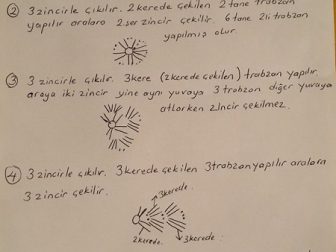 ② 3 zincirle çıkılır. 2 kerede çekilen 2 tane trabzan
yapılır aralara 2.şer zincir çekilir. 6 tane 2li trabzan
yapılmış olur.
③ 3 zincirle çıkılır. 3kere (2kerede çekilen) trabzan yapılır
araya iki zincir yine aynı yuvaya 3 trabzan diğer yuvaya
atlarken zincir çekilmez.
④ 3 zincirle çıkılır. 3kerede çekilen 3trabzan yapılır aralara
3 zincir çekilir.
3kerede
2kerede.
3kerede.